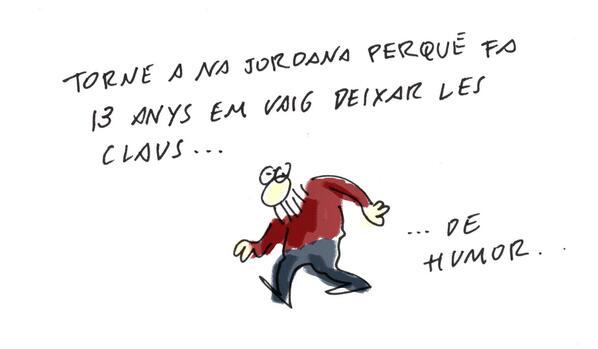 TORNE A NA JORDANA PERQUÈ FA
13 ANYS EM VAIG DEIXAR LES
CLAUS...
... DE
HUMOR...